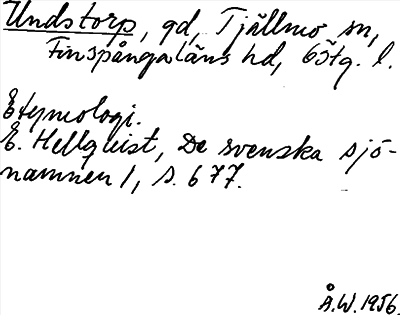 Undstorp, gd, Tjällmo sn,
Finspångaläns hd, Östg. l.
Etymologi.
E. Hellquist, De svenska sjö-
namnen 1, s. 677.
Å.W. 1956.